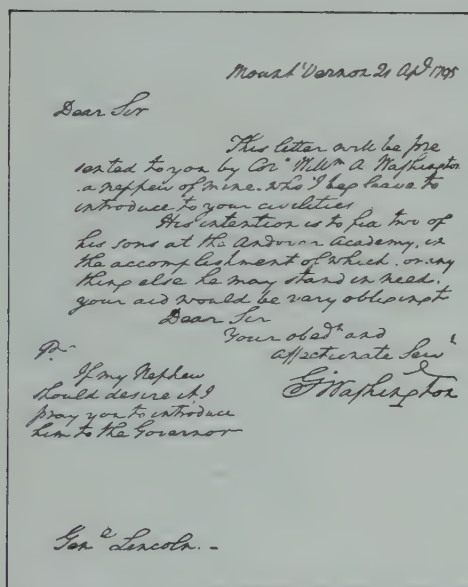 Mount Vernon 20 Apl 1795
Dear Sir
This letter will be pre
sented to you by Colo Willm A Washington
a nephew of mine. who I beg leave to
introduce to your civilities
His intention is to fix two of
his sons at the Andover Academy, in
the accomplishment of which. or any
thing else he may stand in need.
your aid would be very obliging to
Dear Sir
Your obedt and
Affectionate Servt
GWashington
If my Nephew
should desire it I
pray you to introduce
him to the Governor
Genl Lincoln. -